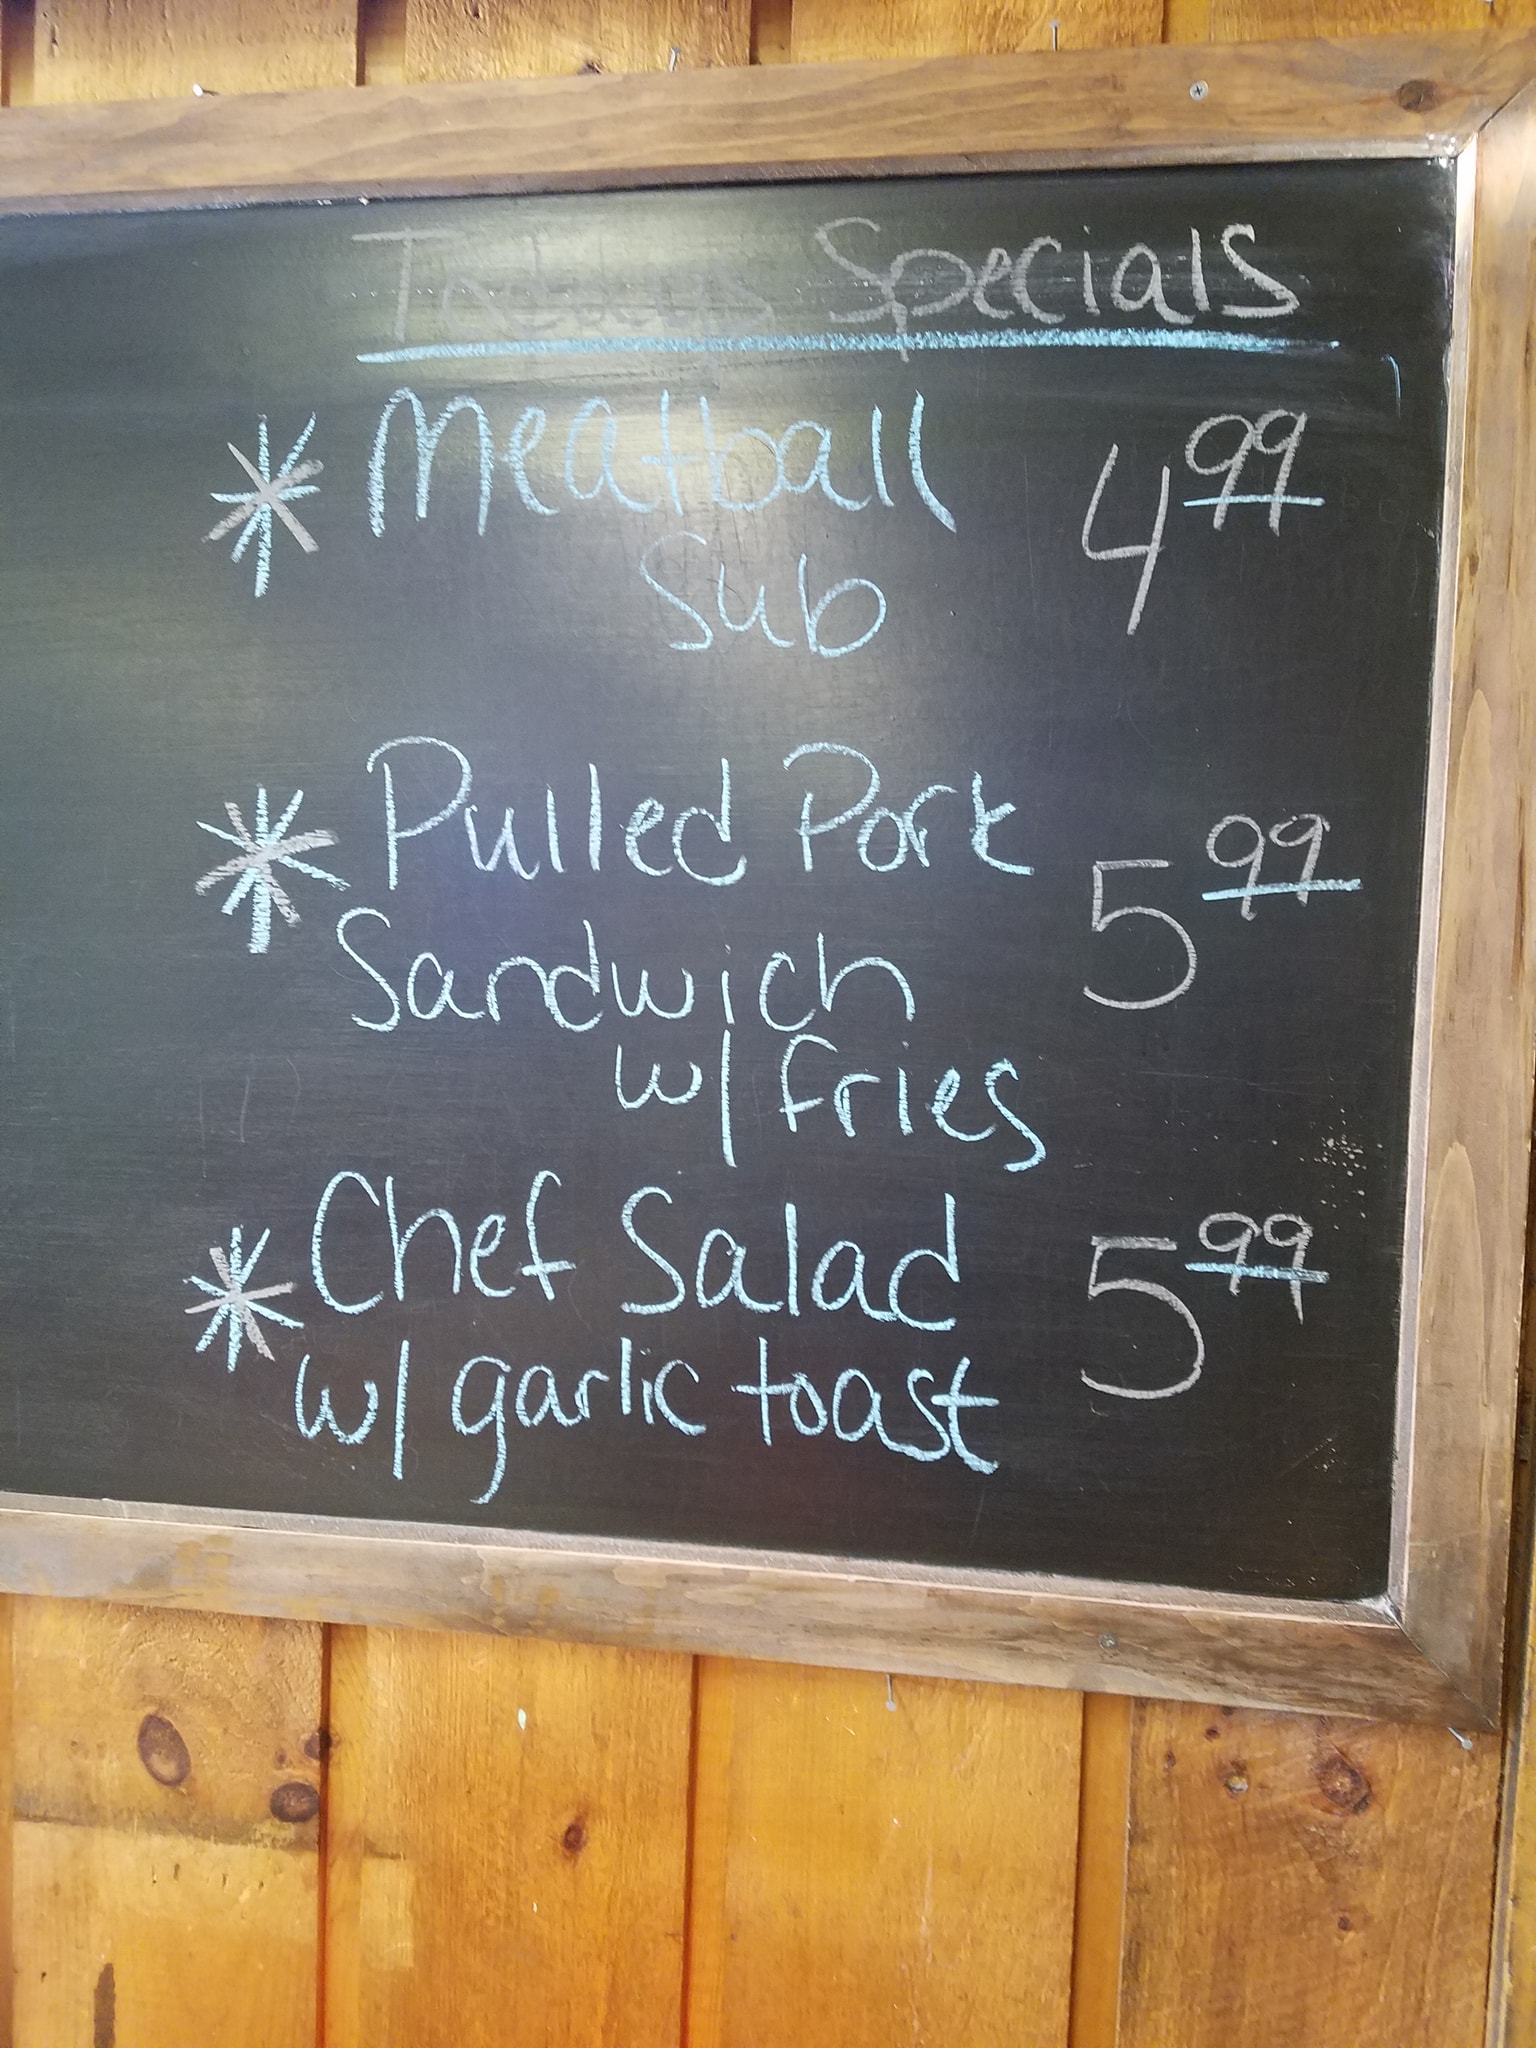 Todays Specials
* Meatball 4 99
Sub
* Pulled Pork 5 99
Sandwich
w/ fries
* Chef Salad 5 99
w/ garlic toast